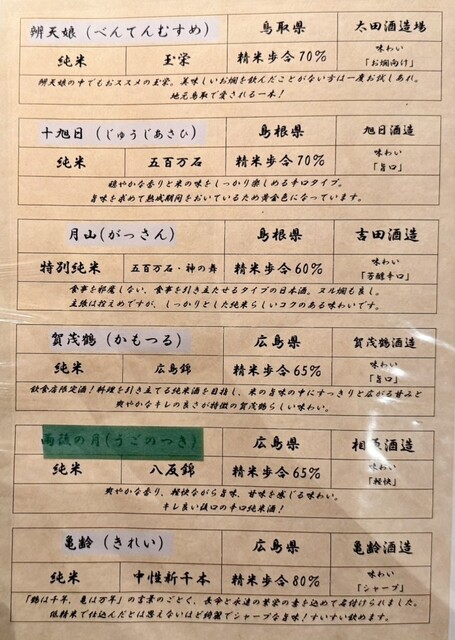 辨天娘（べんてんむすめ） 鳥取県 太田酒造場
純米 玉栄 精米歩合70% 味わい「お燗向け」
辨天娘の中でもおススメの玉栄。美味しいお燗を飲んだことがない方は一度お試しあれ。
地元鳥取で愛される一本！
十旭日（じゅうじあさひ） 島根県 旭日酒造
純米 五百万石 精米歩合70% 味わい「旨口」
穏やかな香りと米の味をしっかり楽しめる辛口タイプ。
旨味を求めて熟成期間をおいているため黄金色になっています。
月山（がっさん） 島根県 吉田酒造
特別純米 五百万石・神の舞 精米歩合60% 味わい「芳醇辛口」
食事を邪魔しない、食事を引き立たせるタイプの日本酒。ヌル燗も良し。
主張は控えめですが、しっかりとした純米らしいコクのある味わいです。
賀茂鶴（かもつる） 広島県 賀茂鶴酒造
純米 広島錦 精米歩合65% 味わい「旨口」
飲食店限定酒！料理を引き立てる純米酒を目指し、米の旨味の中にすっきりと広がる甘みと
爽やかなキレの良さが特徴の賀茂鶴らしい味わい。
雨後の月（うごのつき） 広島県 相原酒造
純米 八反錦 精米歩合65% 味わい「軽快」
爽やかな香り、軽快ながら旨味、甘味を感じる味わい。
キレ良い後口の辛口純米酒！
亀齢（きれい） 広島県 亀齢酒造
純米 中生新千本 精米歩合80% 味わい「シャープ」
「鶴は千年、亀は万年」の言葉のごとく、長命と永遠の繁栄の意を込めて名付けられました。
低精米で仕込んだとは思えないほど綺麗でシャープな旨味！すいすい飲めます。